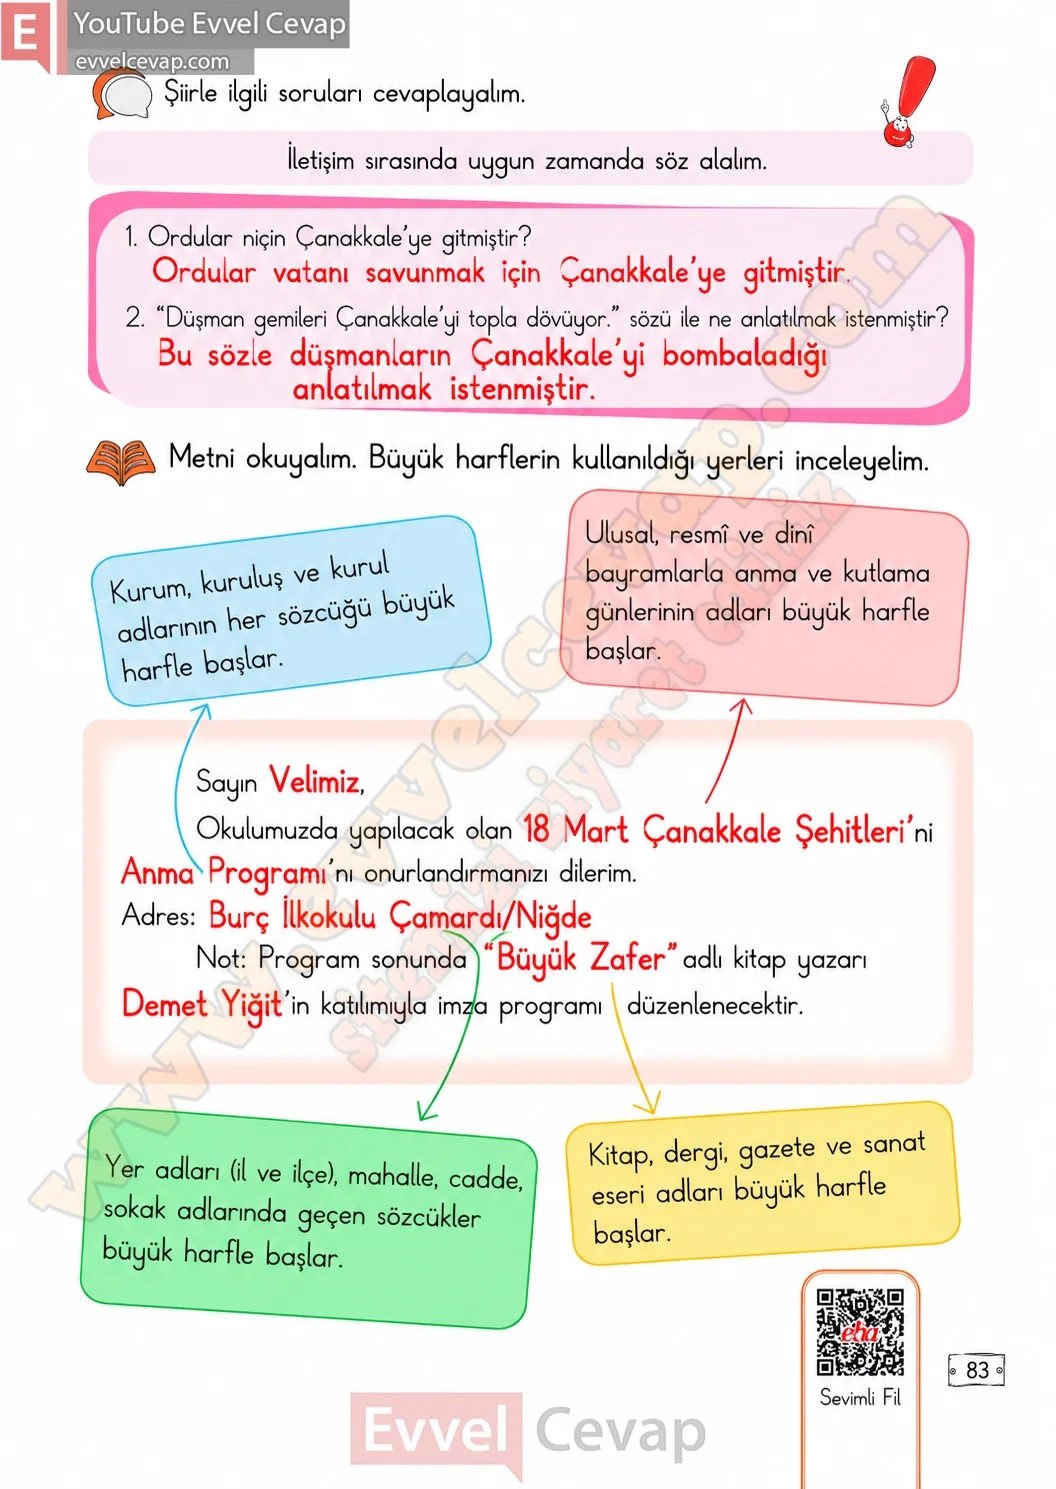 E YouTube Evvel Cevap
evvelcevap.com
Şiirle ilgili soruları cevaplayalım.
İletişim sırasında uygun zamanda söz alalım.
1. Ordular niçin Çanakkale'ye gitmiştir?
Ordular vatanı savunmak için Çanakkale'ye gitmiştir.
2. “Düşman gemileri Çanakkale'yi topla dövüyor.” sözü ile ne anlatılmak istenmiştir?
Bu sözle düşmanların Çanakkale'yi bombaladığı
anlatılmak istenmiştir.
Metni okuyalım. Büyük harflerin kullanıldığı yerleri inceleyelim.
Kurum, kuruluş ve kurul
adlarının her sözcüğü büyük
harfle başlar.
Ulusal, resmî ve dinî
bayramlarla anma ve kutlama
günlerinin adları büyük harfle
başlar.
Sayın Velimiz,
Okulumuzda yapılacak olan 18 Mart Çanakkale Şehitleri'ni
Anma Programı'nı onurlandırmanızı dilerim.
Adres: Burç İlkokulu Çamardı/Niğde
Not: Program sonunda “Büyük Zafer” adlı kitap yazarı
Demet Yiğit'in katılımıyla imza programı düzenlenecektir.
Yer adları (il ve ilçe), mahalle, cadde,
sokak adlarında geçen sözcükler
büyük harfle başlar.
Kitap, dergi, gazete ve sanat
eseri adları büyük harfle
başlar.
eba
Sevimli Fil
83
Evvel Cevap
www.evvelcevap.com
sitemizi ziyaret ediniz